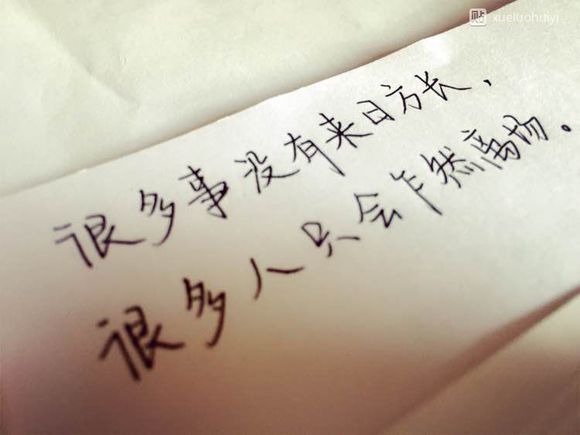 贴 xueluohuiyi
很多事没有来日方长，
很多人只会乍然离场。